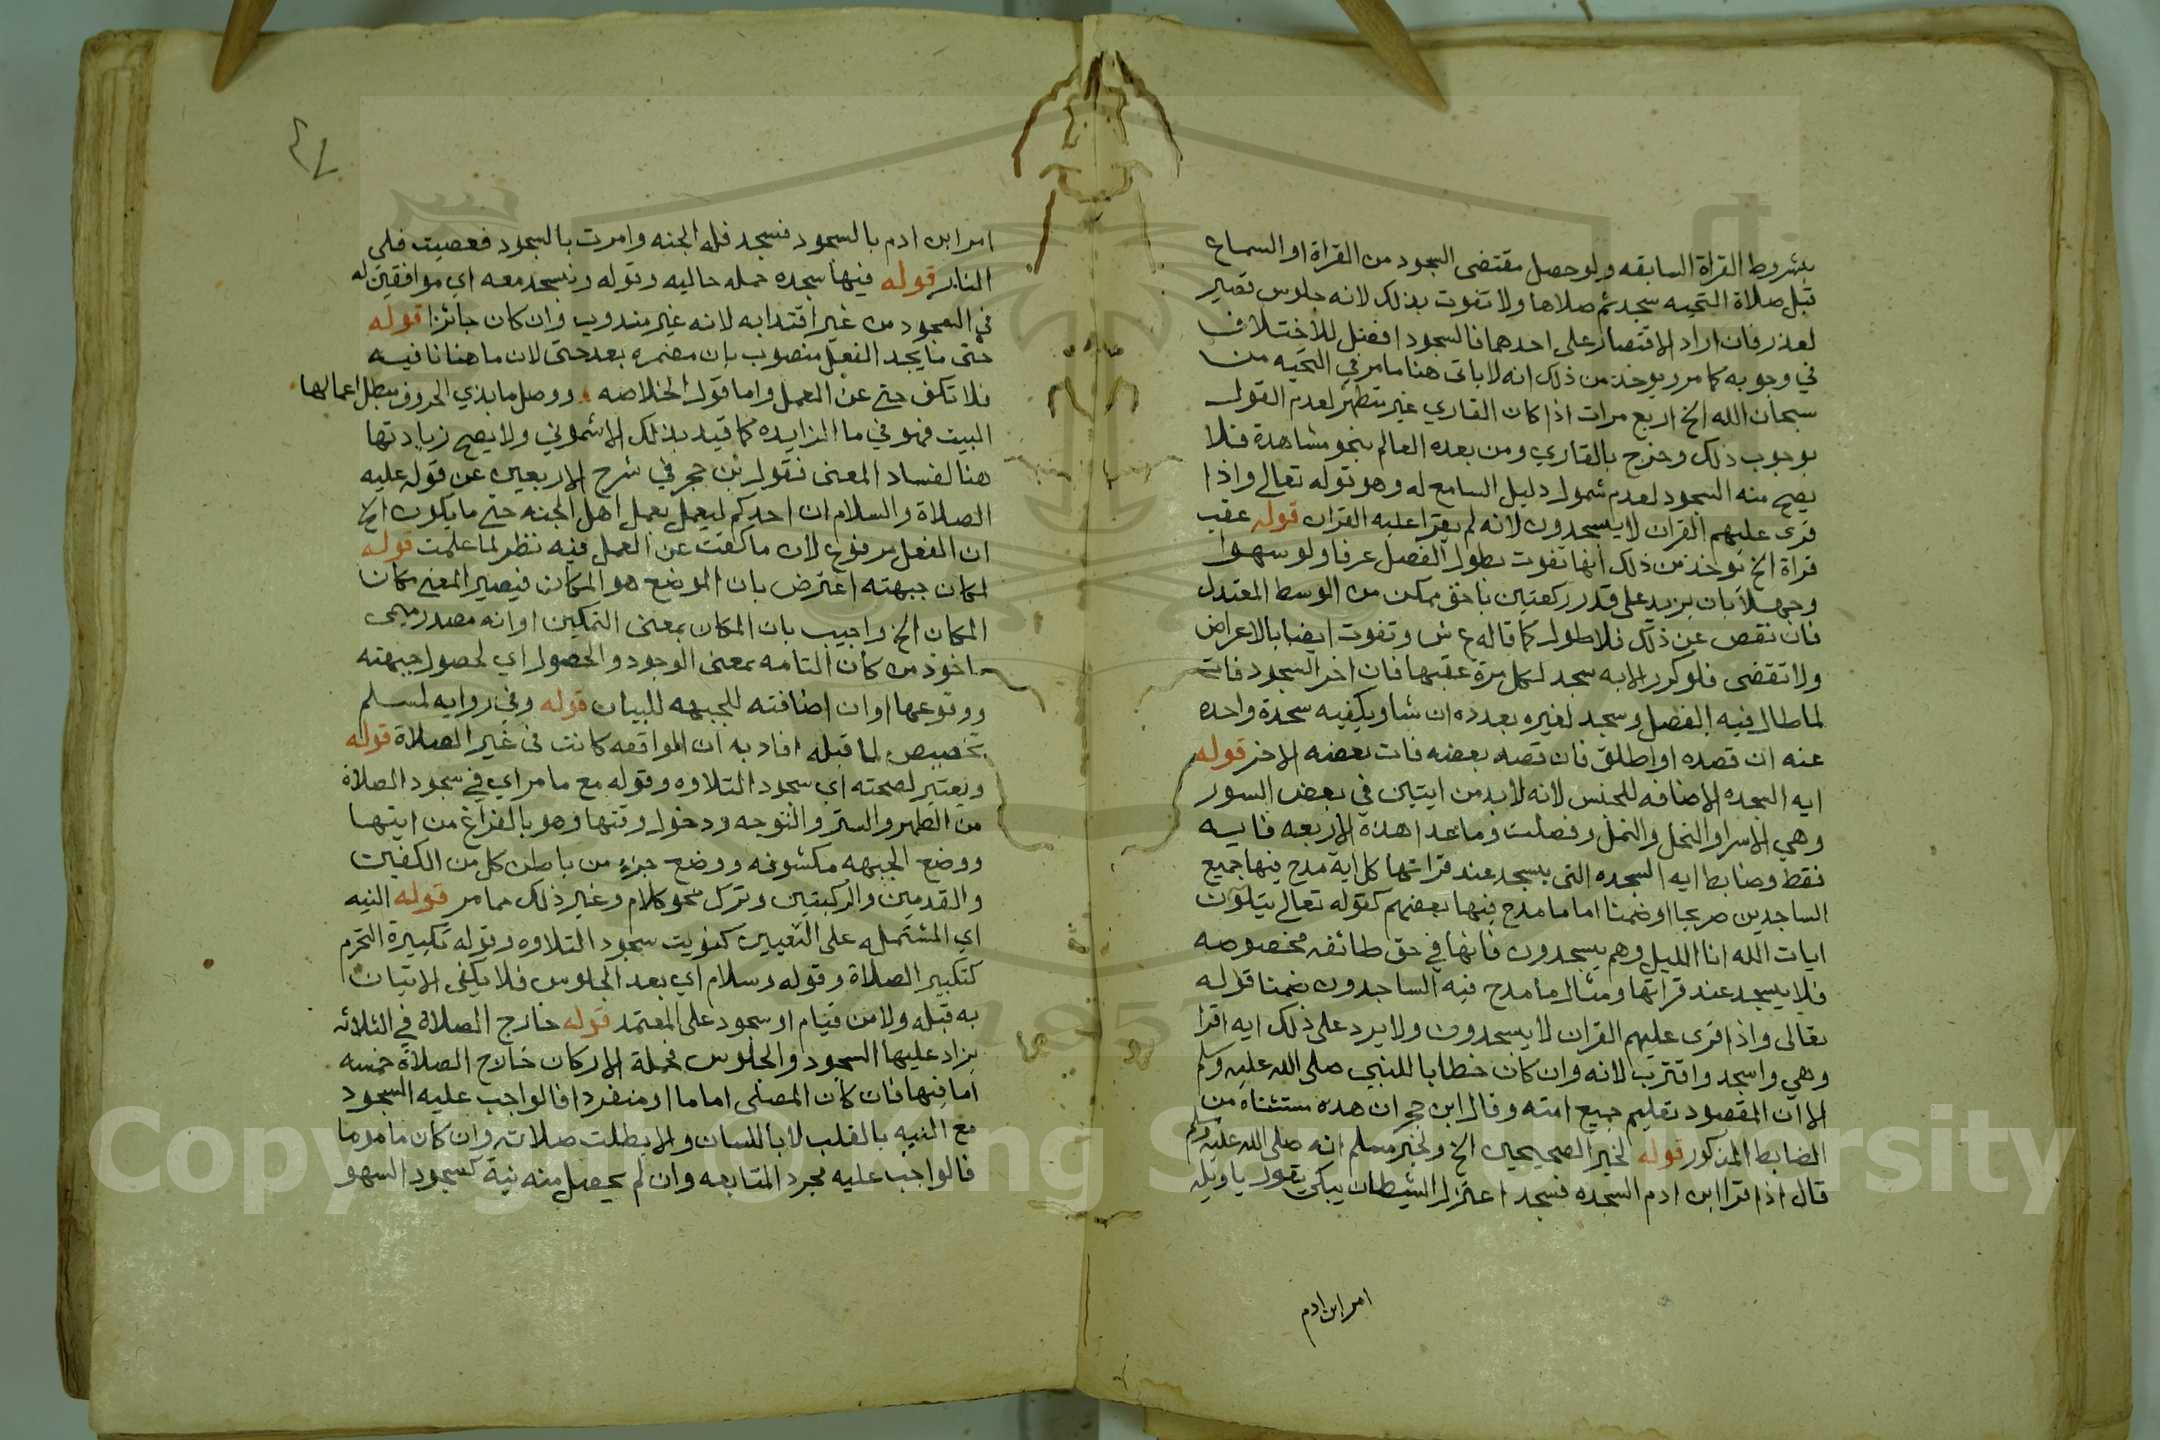 بشروط القراة السابقه ولو حصل مقتضى السجود من القراة او السماع
قبل صلاة التحيه سجد ثم صلاها ولا تفوت بذلك لانه جلوس قصير
لعذر فان اراد الاقتصار على احدهما فالسجود افضل للاختلاف
في وجوبه كما مر ويوخذ من ذلك انه لا ياتي هنا ما مر في التحيه من
سبحان الله الخ اربع مرات اذا كان القاري غير متطهر لعدم القول
بوجوب ذلك وخرج بالقاري ومن بعده العالم بنحو مشاهدة فلا
يصح منه السجود لعدم شمول دليل السامع له وهو قوله تعالى واذا
قرى عليهم القران لا يسجدون لانه لم يقرا عليه القران قوله عقب
قراة الخ يوخذ من ذلك انها تفوت بطول الفصل عرفا ولو سهوا
وجهلا بان يزيد على قدر ركعتين باخف ممكن من الوسط المعتدل
فان نقص عن ذلك فلا طول كما قاله ع ش وتفوت ايضا بالاعراض
ولا تقضى فلو كرر الايه سجد لكل مرة عقبها فان اخر السجود فات
لما طال فيه الفصل وسجد لغيره بعدده ان شا ويكفيه سجدة واحده
عنه ان قصده او اطلق فان قصد بعضه فات بعضه الاخر قوله
ايه السجده الاضافه للجنس لانه لا بد من ايتين في بعض السور
وهي الاسرا والنحل والنمل وفصلت وما عدا هذه الاربعه فايه
فقط وضابط ايه السجده التي يسجد عند قراتها كل اية مدح فيها جميع
الساجدين صريحا او ضمنا اما ما مدح فيها بعضهم كقوله تعالى يتلون
ايات الله انا الليل وهم يسجدون فانها في حق طائفه مخصوصه
فلا يسجد عند قراتها ومثال ما مدح فيه الساجدون ضمنا قوله
تعالى واذا قرى عليهم القران لا يسجدون ولا يرد على ذلك ايه اقرا
وهي واسجد واقترب لانه وان كان خطابا للنبي صلى الله عليه وسلم
الا ان المقصود تعليم جميع امته وقال ابن حجر ان هذه مستثناه من
الضابط المذكور قوله لخبر الصحيحين الخ ولخبر مسلم انه صلى الله عليه وسلم
قال اذا قرا ابن ادم السجده فسجد اعتزل الشيطان يبكي يقول يا ويله
امر ابن ادم
٤٧
امر ابن ادم بالسجود فسجد فله الجنه وامرت بالسجود فعصيت فلي
النار قوله فيها سجده جمله حاليه وقوله ونسجد معه اي موافقين له
في السجود من غير اقتدا به لانه غير مندوب وان كان جائزا قوله
حتى ما يجد الفعل منصوب بان مضمره بعد حتى لان ما هنا نافيه
فلا تكف حتى عن العمل واما قول الخلاصه ووصل ما بذي الحروف مبطل اعمالها
البيت فهو في ما الزايده كما قيد بذلك الاشموني ولا يصح زيادتها
هنا لفساد المعنى فقول بن حجر في شرح الاربعين عن قوله عليه
الصلاة والسلام ان احدكم ليعمل بعمل اهل الجنه حتى ما يكون الخ
ان الفعل مرفوع لان ما كفت عن العمل فيه نظر لما علمت قوله
لمكان جبهته اعترض بان الموضع هو المكان فيصير المعنى مكان
المكان الخ واجيب بان المكان بمعنى التمكين او انه مصدر ميمي
ماخوذ من كان التامه بمعنى الوجود والحصول اي لحصول جبهته
ووقوعها او ان اضافته للجبهه للبيان قوله وفي روايه لمسلم
تخصيص لما قبله افاد به ان المواقعه كانت في غير الصلاة قوله
ويعتبر لصحته اي سجود التلاوه وقوله مع ما مر اي في سجود الصلاة
من الطهر والستر والتوجه ودخول وقتها وهو بالفراغ من ايتها
ووضع الجبهه مكشوفه ووضع جزء من باطن كل من الكفين
والقدمين والركبتين وترك نحو كلام وغير ذلك مما مر قوله النيه
اي المشتمله على التعيين كنويت سجود التلاوه وقوله تكبيرة التحرم
كتكبير الصلاة وقوله وسلام اي بعد الجلوس فلا يكفي الاتيان
به قبله ولا من قيام او سجود على المعتمد قوله خارج الصلاة في الثلاثه
يزاد عليها السجود والجلوس فجملة الاركان خارج الصلاة خمسه
اما فيها فان كان المصلي اماما او منفردا فالواجب عليه السجود
مع النيه بالقلب لا باللسان والا بطلت صلاته وان كان ماموما
فالواجب عليه مجرد المتابعه وان لم يحصل منه نية كسجود السهو
Copyright © King Saud University
1957